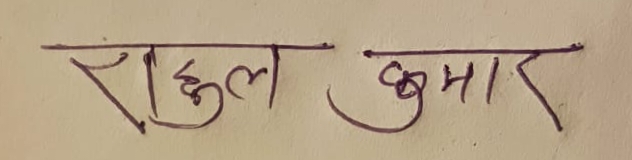 राहुल कुमार